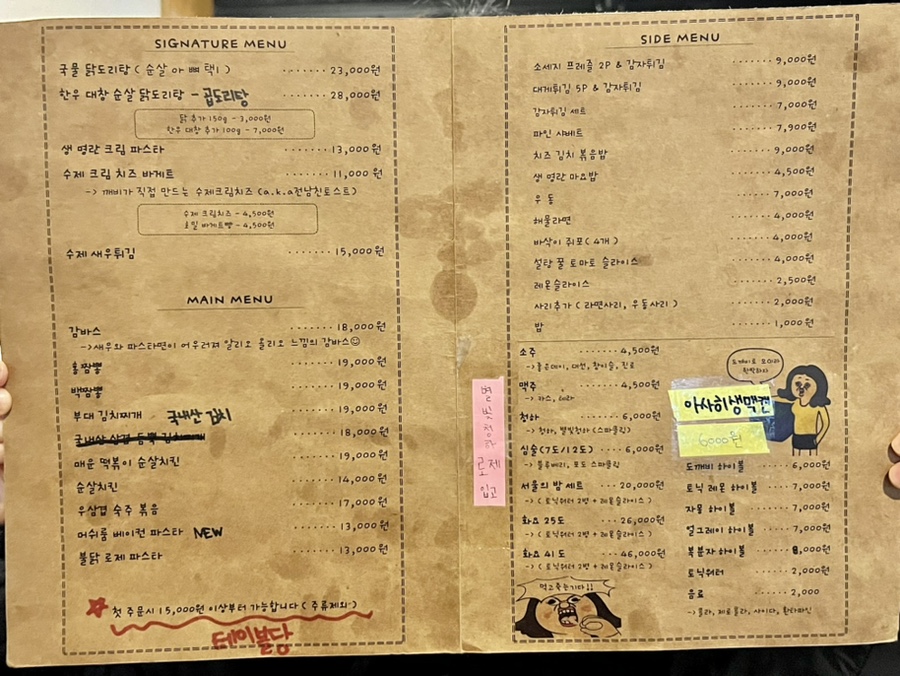 SIGNATURE MENU
국물 닭도리탕 ( 순살 아 뼈 택1 ) ······· 23,000원
한우 대창 순살 닭도리탕 - 곱도리탕 ······· 28,000원
닭 추가 150g - 3,000원
한우 대창 추가 100g - 7,000원
생 명란 크림 파스타 ······· 13,000원
수제 크림 치즈 바게트 ······· 11,000원
-> 깨비가 직접 만드는 수제크림치즈 (a.k.a전남친토스트)
수제 크림치즈 - 4,500원
호밀 바게트빵 - 4,500원
수제 새우튀김 ······· 15,000원
MAIN MENU
감바스 ······· 18,000원
->새우와 파스타면이 어우러져 알리오 올리오 느낌의 감바스☺
홍짬뽕 ······· 19,000원
백짬뽕 ······· 19,000원
부대 김치찌개 국내산 김치 ······· 19,000원
······· 18,000원
매운 떡볶이 순살치킨 ······· 19,000원
순살치킨 ······· 14,000원
우삼겹 숙주 볶음 ······· 17,000원
머쉬룸 베이컨 파스타 NEW ······· 13,000원
불닭 로제 파스타 ······· 13,000원
첫 주문시 15,000원 이상부터 가능합니다 ( 주류제외 )
SIDE MENU
소세지 프레즐 2P & 감자튀김 ······· 9,000원
대게튀김 5P & 감자튀김 ······· 9,000원
감자튀김 세트 ······· 7,000원
파인 샤베트 ······· 7,900원
치즈 김치 볶음밥 ······· 9,000원
생 명란 마요밥 ······· 4,500원
우동 ······· 7,000원
해물라면 ······· 4,000원
바삭이 쥐포( 4개 ) ······· 4,000원
설탕 꿀 토마토 슬라이스 ······· 4,000원
레몬슬라이스 ······· 2,500원
사리추가 ( 라면사리, 우동사리 ) ······· 2,000원
밥 ······· 1,000원
소주 ······· 4,500원
->좋은데이, 대선, 참이슬, 진로
맥주 ······· 4,500원
->카스, 테라
청하 ······· 6,000원
-> 청하, 별빛청하 (스파클링)
심술(7도/12도) ······· 6,000원
-> 블루베리, 포도 스파클링
서울의 밤 세트 ··· 20,000원
-> ( 토닉워터 2병 + 레몬슬라이스 )
화요 25도 ······· 26,000원
-> ( 토닉워터 2병 + 레몬슬라이스 )
화요 41도 ······· 46,000원
-> ( 토닉워터 2병 + 레몬슬라이스 )
먹고죽는기다!!
아사히생맥캔
6000원
도깨비 하이볼 ···· 6,000원
토닉 레몬 하이볼 ···· 7,000원
자몽 하이볼 ···· 7,000원
얼그레이 하이볼 ···· 7,000원
복분자 하이볼 ······ 8,000원
토닉워터 ······ 2,000원
음료 ······ 2,000
->콜라, 제로콜라, 사이다, 환타파인
별빛청하
로제
입고